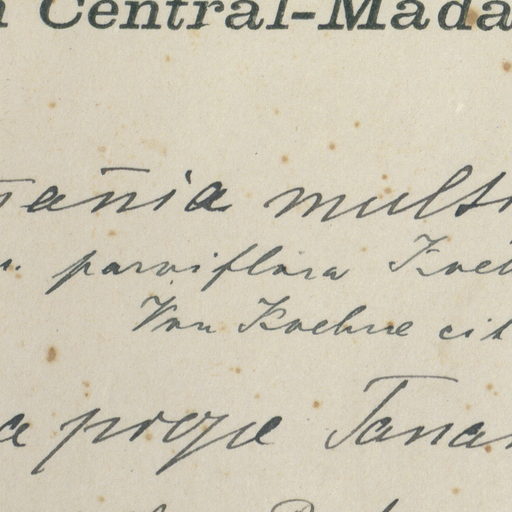 n Central-Mada
mannia multi
v. parviflora Koeh
Von Koehne cit
a prope Tanan